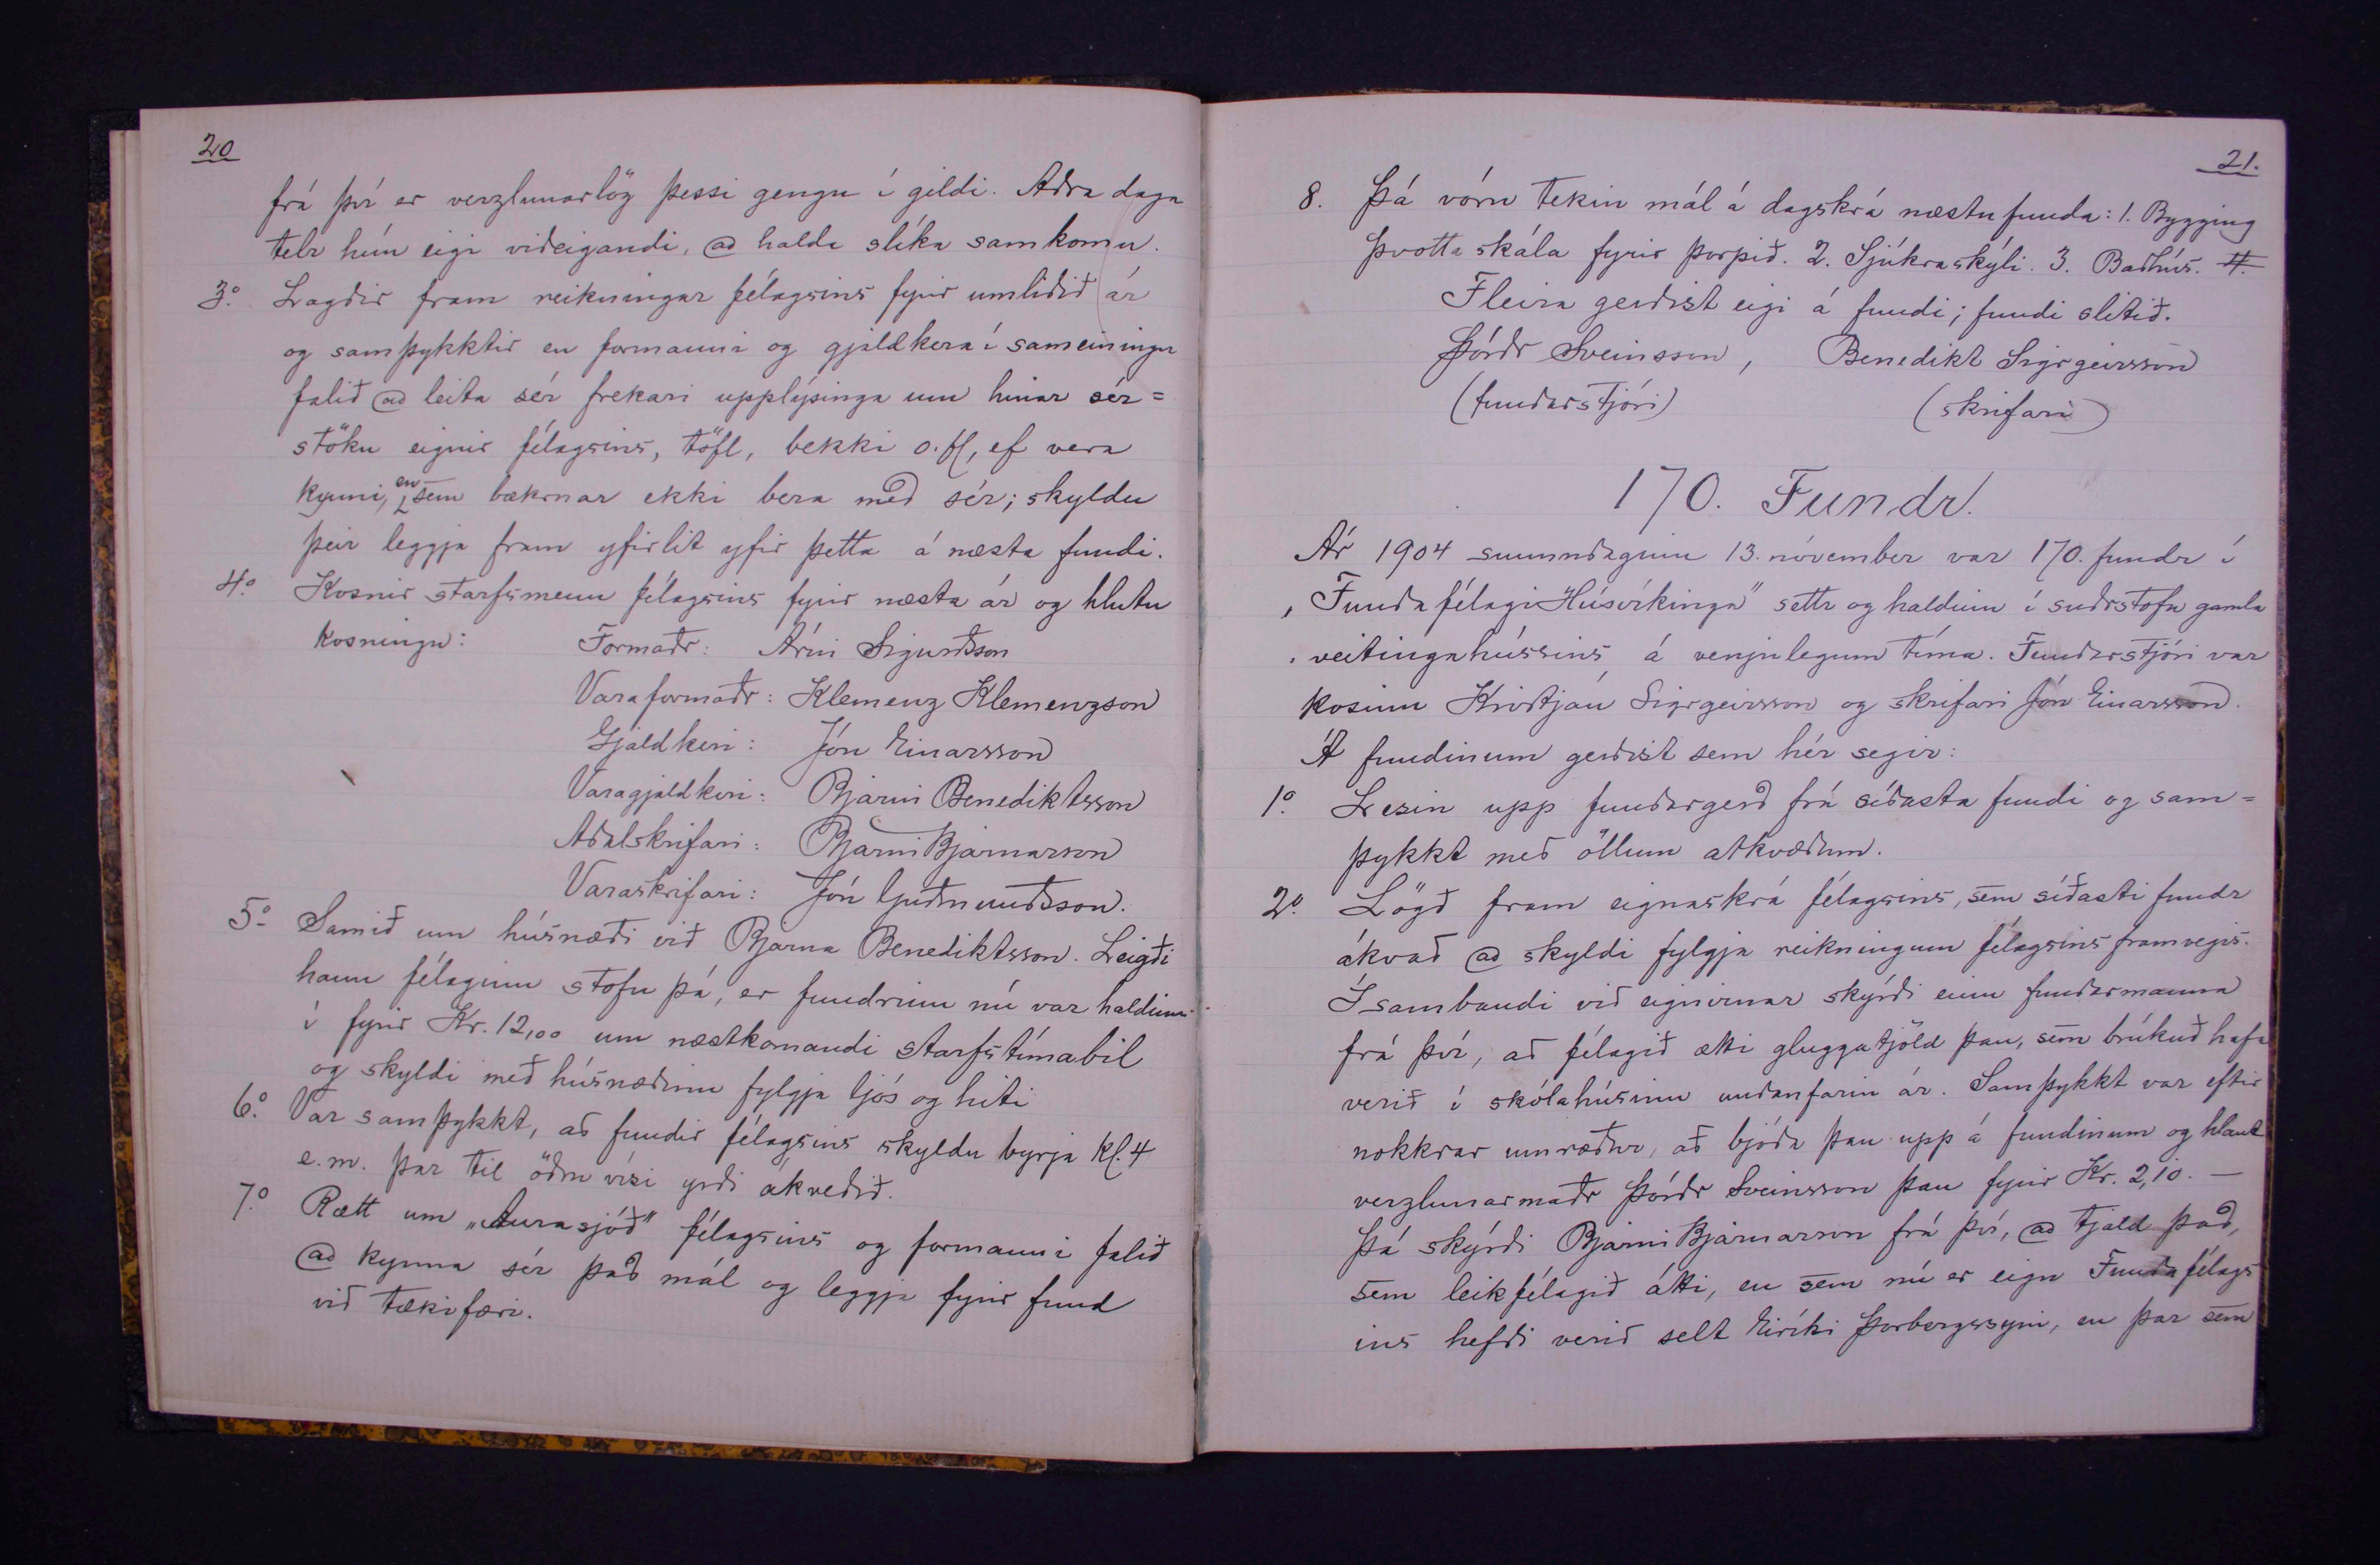 20
frá því er verzlunarlög þessi gengu í gildi. Aðra daga
telr hún eigi viðeigandi, að halda slíka samkomu.
3.o Lagðir fram reikningar félagsins fyrir umliðið ár
og samþykktir en formanni og gjaldkera í sameiningu
falið að leita sér frekari upplýsinga um hinar sér=
stöku eignir félagsins, töfl, bekki o.fl, ef vera
kynni, en sem bækrnar ekki bera með sér; skyldu
þeir leggja fram yfirlit yfir þetta á næsta fundi.
4.o Kosnir starfsmenn félagsins fyrir næsta ár og hlutu
kosningu: Formaðr: Árni Sigurðsson
Varaformaðr: Klemenz Klemenzson
Gjaldkeri: Jón Einarsson
Varagjaldkeri: Bjarni Benediktsson
Aðalskrifari: Bjarni Bjarnarson
Varaskrifari: Jón Guðmundsson.
5.o Samið um húsnæði við Bjarna Benediktsson. Leigði
hann félaginu stofu þá, er fundrinn nú var haldinn
í fyrir Kr. 12,00 um næstkomandi starfstímabil
og skyldi með húsnæðinu fylgja ljós og hiti
6.o Var samþykkt, að fundir félagsins skyldu byrja kl. 4
e.m. þar til öðru vísi yrði ákveðið.
7.o Rætt um „Aurasjóð" félagsins og formanni falið
að kynna sér það mál og leggja fyrir fund
við tækifæri.
21.
8. Þá vóru tekin mál á dagskrá næstu funda: 1. Bygging
þvottaskála fyrir þorpið. 2. Sjúkraskýli. 3. Baðhús. 4.
Fleira gerðist eigi á fundi; fundi slitið.
Þórðr Sveinsson, Benedikt Sigrgeirsson
(fundarstjóri) (skrifari)
170. Fundr.
Ár 1904 sunnudaginn 13. nóvember var 170. fundr í
„Fundafélagi Húsvíkinga" settr og haldinn í suðrstofu gamla
veitingahússins á venjulegum tíma. Fundarstjóri var
kosinn Kristján Sigrgeirsson og skrifari Jón Einarsson.
Á fundinum gerðist sem hér segir:
1.o Lesin upp fundargerð frá síðasta fundi og sam=
þykkt með öllum atkvæðum.
2.o Lögð fram eignaskrá félagsins, sem síðasti fundr
ákvað að skyldi fylgja reikningum félagsins framvegis.
Í sambandi við eignirnar skýrði einn fundarmanna
frá því, að félagið ætti gluggatjöld þau, sem brúkuð hafa
verið í skólahúsinu undanfarin ár. Samþykkt var eftir
nokkrar umræður, að bjóða þau upp á fundinum og hlaut
verzlunarmaðr Þórðr Sveinsson þau fyrir Kr. 2,10. —
Þá skýrði Bjarni Bjarnarson frá því, að tjald það,
sem leikfélagið átti, en sem nú er eign Fundafélags
ins hefði verið selt Eiríki Þorbergssyni, en þar sem